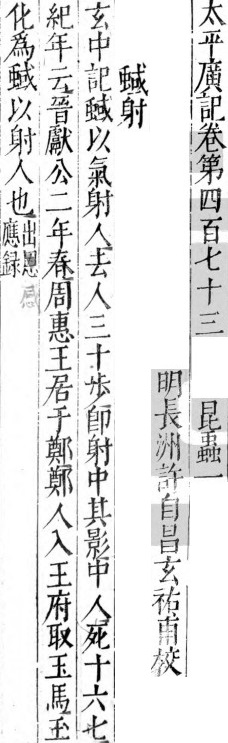 太平廣記卷第四百七十三　昆蟲一
明長洲許自昌玄祐甫校
蜮射
玄中記蜮以氣射人去人三十步卽射中其影中人死十六七
紀年云晉獻公二年春周惠王居于鄭鄭人入王府取玉馬玉
化爲蜮以射人也出感應録